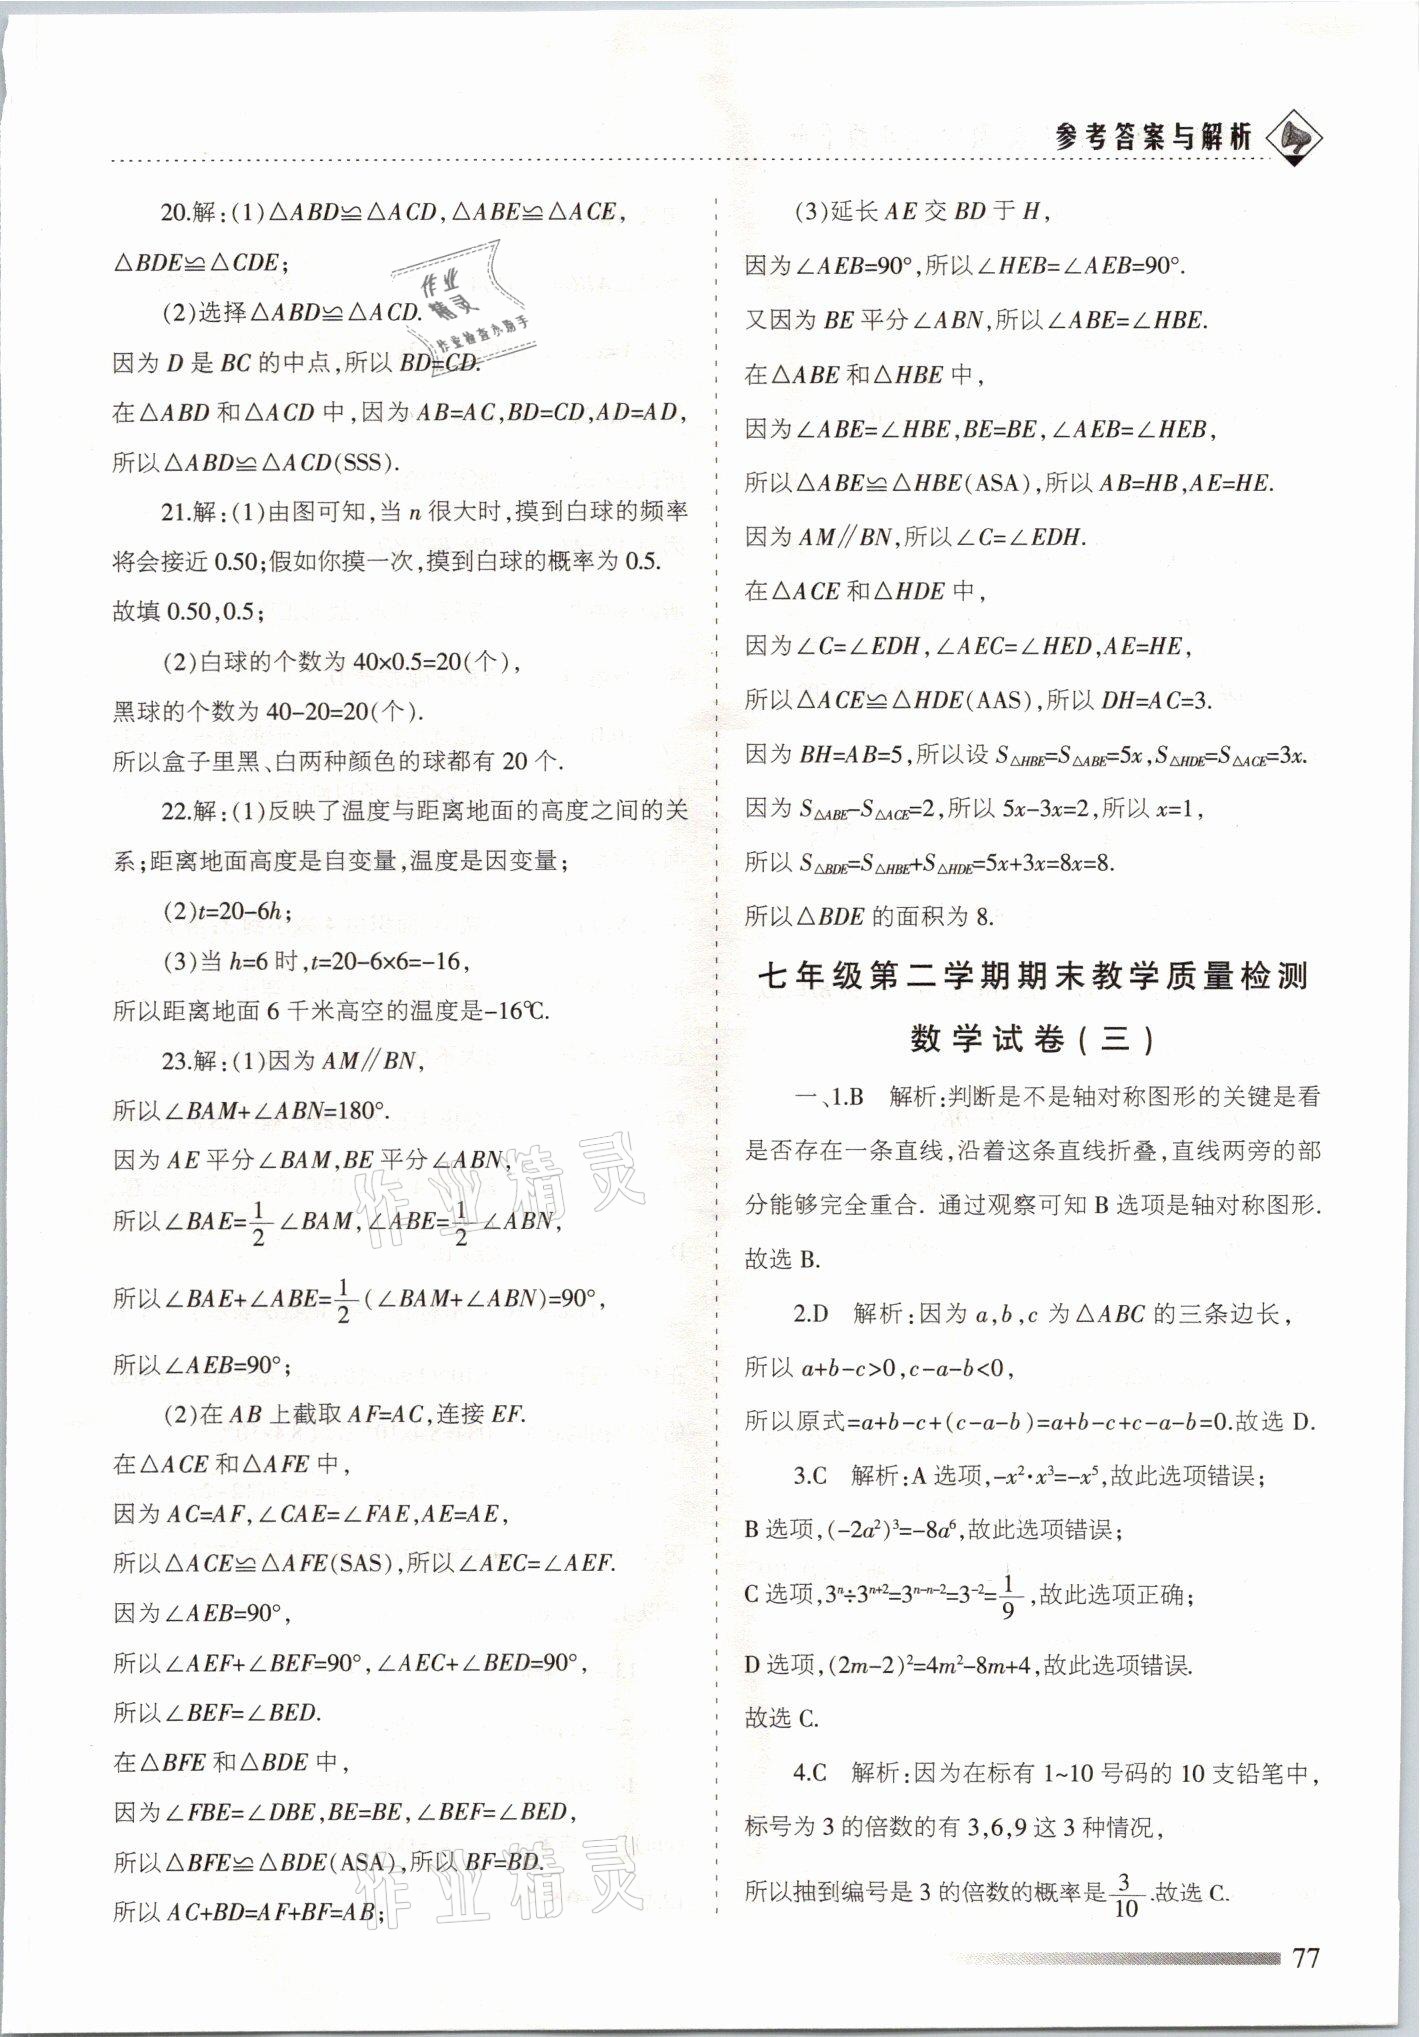 参考答案与解析
20.解:(1)△ABD≌△ACD,△ABE≌△ACE,
△BDE≌△CDE;
(2)选择△ABD≌△ACD.
因为 D 是 BC 的中点,所以 BD=CD.
在△ABD 和△ACD 中,因为 AB=AC,BD=CD,AD=AD,
所以△ABD≌△ACD(SSS).
21.解:(1)由图可知,当 n 很大时,摸到白球的频率
将会接近 0.50;假如你摸一次,摸到白球的概率为 0.5.
故填 0.50,0.5;
(2)白球的个数为 40×0.5=20(个),
黑球的个数为 40-20=20(个).
所以盒子里黑、白两种颜色的球都有 20 个.
22.解:(1)反映了温度与距离地面的高度之间的关
系;距离地面高度是自变量,温度是因变量;
(2)t=20-6h;
(3)当 h=6 时,t=20-6×6=-16,
所以距离地面 6 千米高空的温度是-16℃.
23.解:(1)因为 AM∥BN,
所以∠BAM+∠ABN=180°.
因为 AE 平分∠BAM,BE 平分∠ABN,
所以∠BAE=1/2∠BAM,∠ABE=1/2∠ABN,
所以∠BAE+∠ABE=1/2(∠BAM+∠ABN)=90°,
所以∠AEB=90°;
(2)在 AB 上截取 AF=AC,连接 EF.
在△ACE 和△AFE 中,
因为 AC=AF,∠CAE=∠FAE,AE=AE,
所以△ACE≌△AFE(SAS),所以∠AEC=∠AEF.
因为∠AEB=90°,
所以∠AEF+∠BEF=90°,∠AEC+∠BED=90°,
所以∠BEF=∠BED.
在△BFE 和△BDE 中,
因为∠FBE=∠DBE,BE=BE,∠BEF=∠BED,
所以△BFE≌△BDE(ASA),所以 BF=BD.
所以 AC+BD=AF+BF=AB;
(3)延长 AE 交 BD 于 H,
因为∠AEB=90°,所以∠HEB=∠AEB=90°.
又因为 BE 平分∠ABN,所以∠ABE=∠HBE.
在△ABE 和△HBE 中,
因为∠ABE=∠HBE,BE=BE,∠AEB=∠HEB,
所以△ABE≌△HBE(ASA),所以 AB=HB,AE=HE.
因为 AM∥BN,所以∠C=∠EDH.
在△ACE 和△HDE 中,
因为∠C=∠EDH,∠AEC=∠HED,AE=HE,
所以△ACE≌△HDE(AAS),所以 DH=AC=3.
因为 BH=AB=5,所以设 S△HBE=S△ABE=5x,S△HDE=S△ACE=3x.
因为 S△ABE-S△ACE=2,所以 5x-3x=2,所以 x=1,
所以 S△BDE=S△HBE+S△HDE=5x+3x=8x=8.
所以△BDE 的面积为 8.
七年级第二学期期末教学质量检测
数学试卷(三)
一、1.B 解析:判断是不是轴对称图形的关键是看
是否存在一条直线,沿着这条直线折叠,直线两旁的部
分能够完全重合. 通过观察可知 B 选项是轴对称图形.
故选 B.
2.D 解析:因为 a,b,c 为△ABC 的三条边长,
所以 a+b-c>0,c-a-b<0,
所以原式=a+b-c+(c-a-b)=a+b-c+c-a-b=0.故选 D.
3.C 解析:A 选项,-x²·x³=-x⁵,故此选项错误;
B 选项,(-2a²)³=-8a⁶,故此选项错误;
C 选项,3ⁿ÷3ⁿ⁺²=3ⁿ⁻ⁿ⁻²=3⁻²=1/9,故此选项正确;
D 选项,(2m-2)²=4m²-8m+4,故此选项错误.
故选 C.
4.C 解析:因为在标有 1~10 号码的 10 支铅笔中,
标号为 3 的倍数的有 3,6,9 这 3 种情况,
所以抽到编号是 3 的倍数的概率是3/10.故选 C.
77
作业
精灵
作业检查小助手
作业精灵
作业精灵